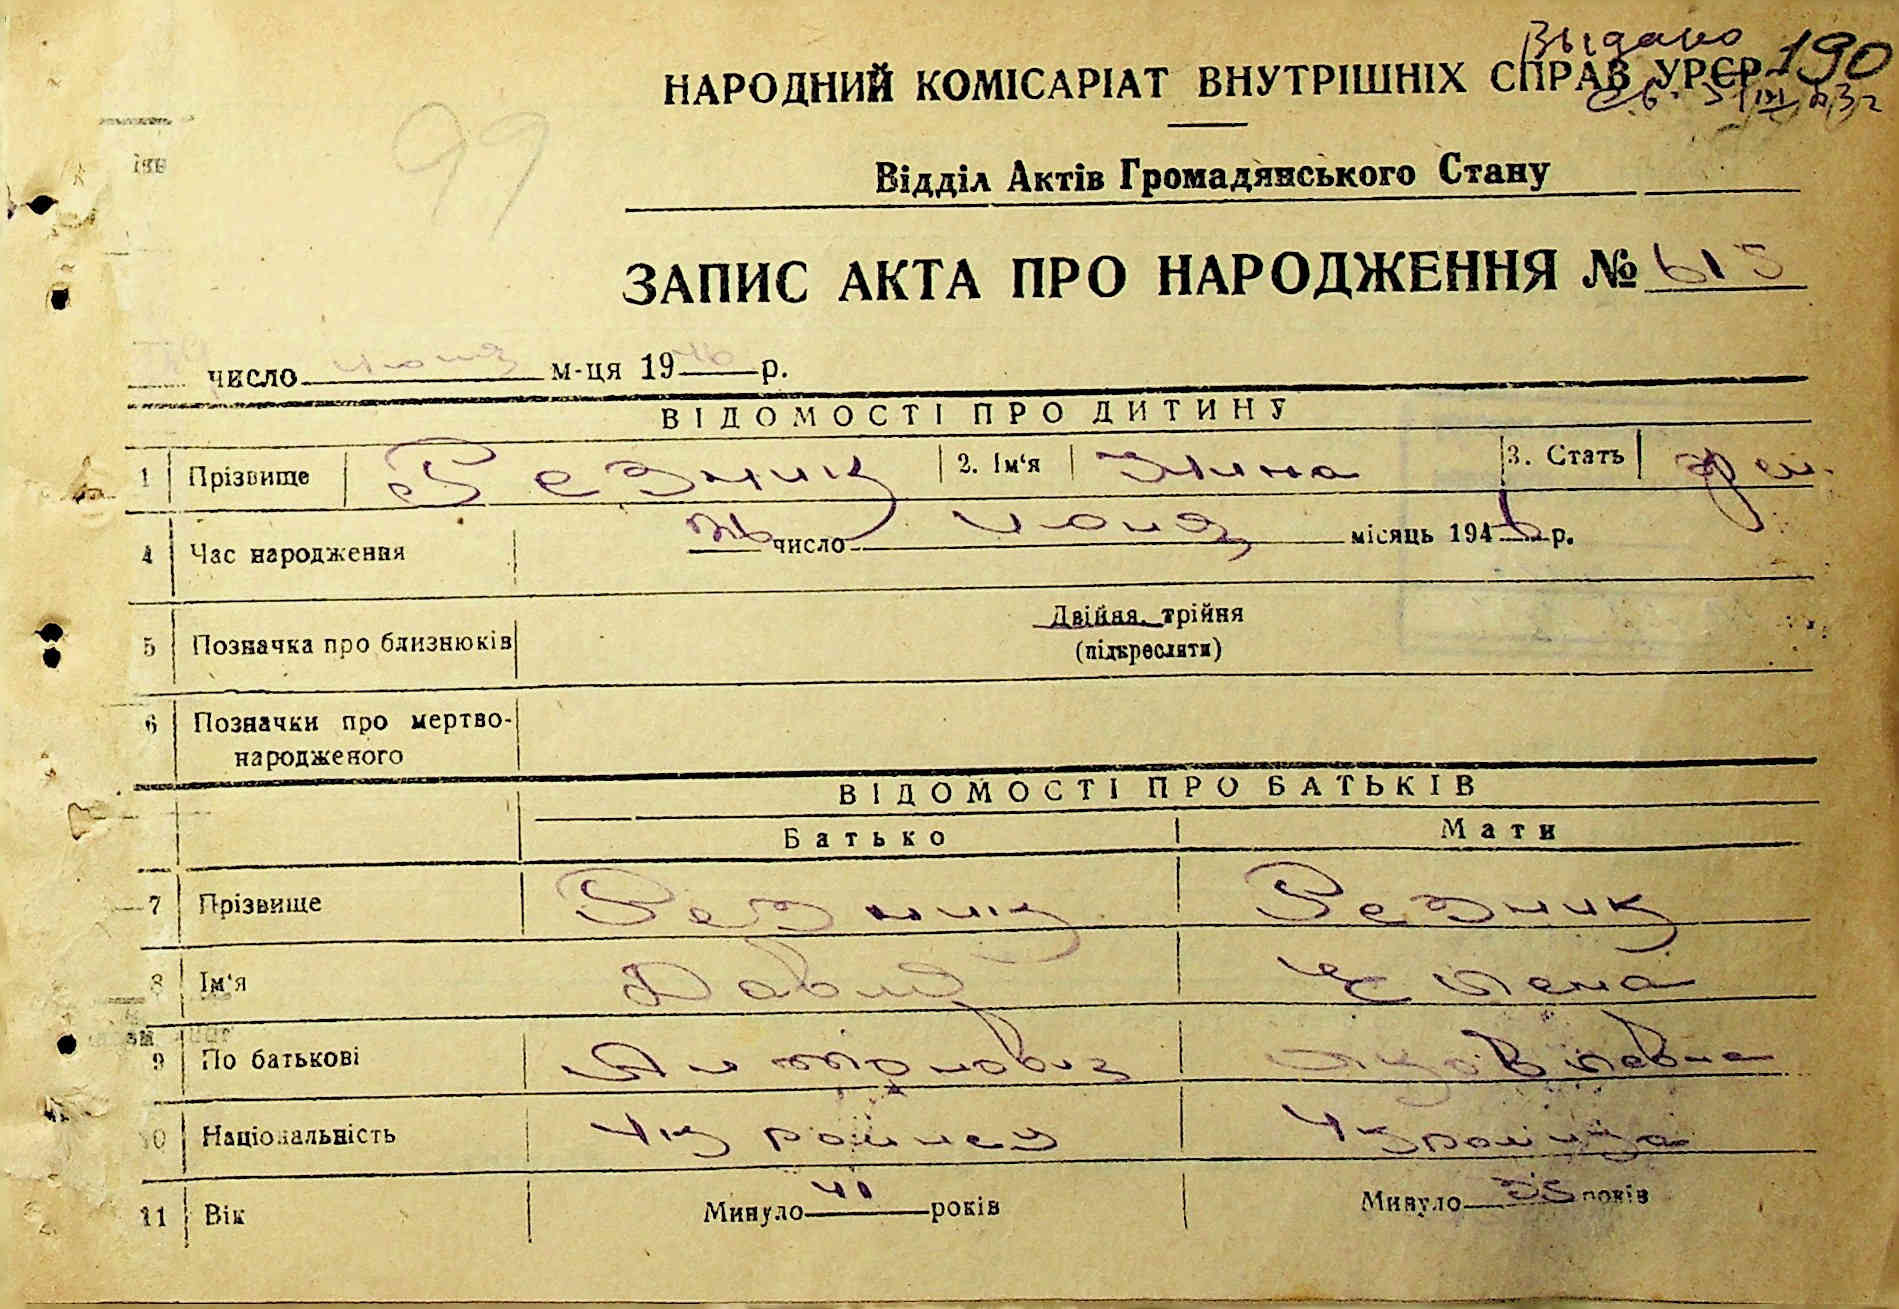 Выдано 190
НАРОДНИЙ КОМІСАРІАТ ВНУТРІШНІХ СПРАВ УРСР
99
Відділ Актів Громадянського Стану
ЗАПИС АКТА ПРО НАРОДЖЕННЯ № 615
число июня м-ця 1946 р.
ВІДОМОСТІ ПРО ДИТИНУ
1 Прізвище Резник 2. Ім'я Зина 3. Стать жен.
4 Час народження число июня місяць 1946 р.
5 Позначка про близнюків Двійня, трійня
(підкреслити)
6 Позначки про мертво-
народженого
ВІДОМОСТІ ПРО БАТЬКІВ
Батько Мати
7 Прізвище Резник Резник
8 Ім'я Давид Елена
9 По батькові
10 Національність Украинец Украинка
11 Вік Минуло 41 років Минуло 35 років